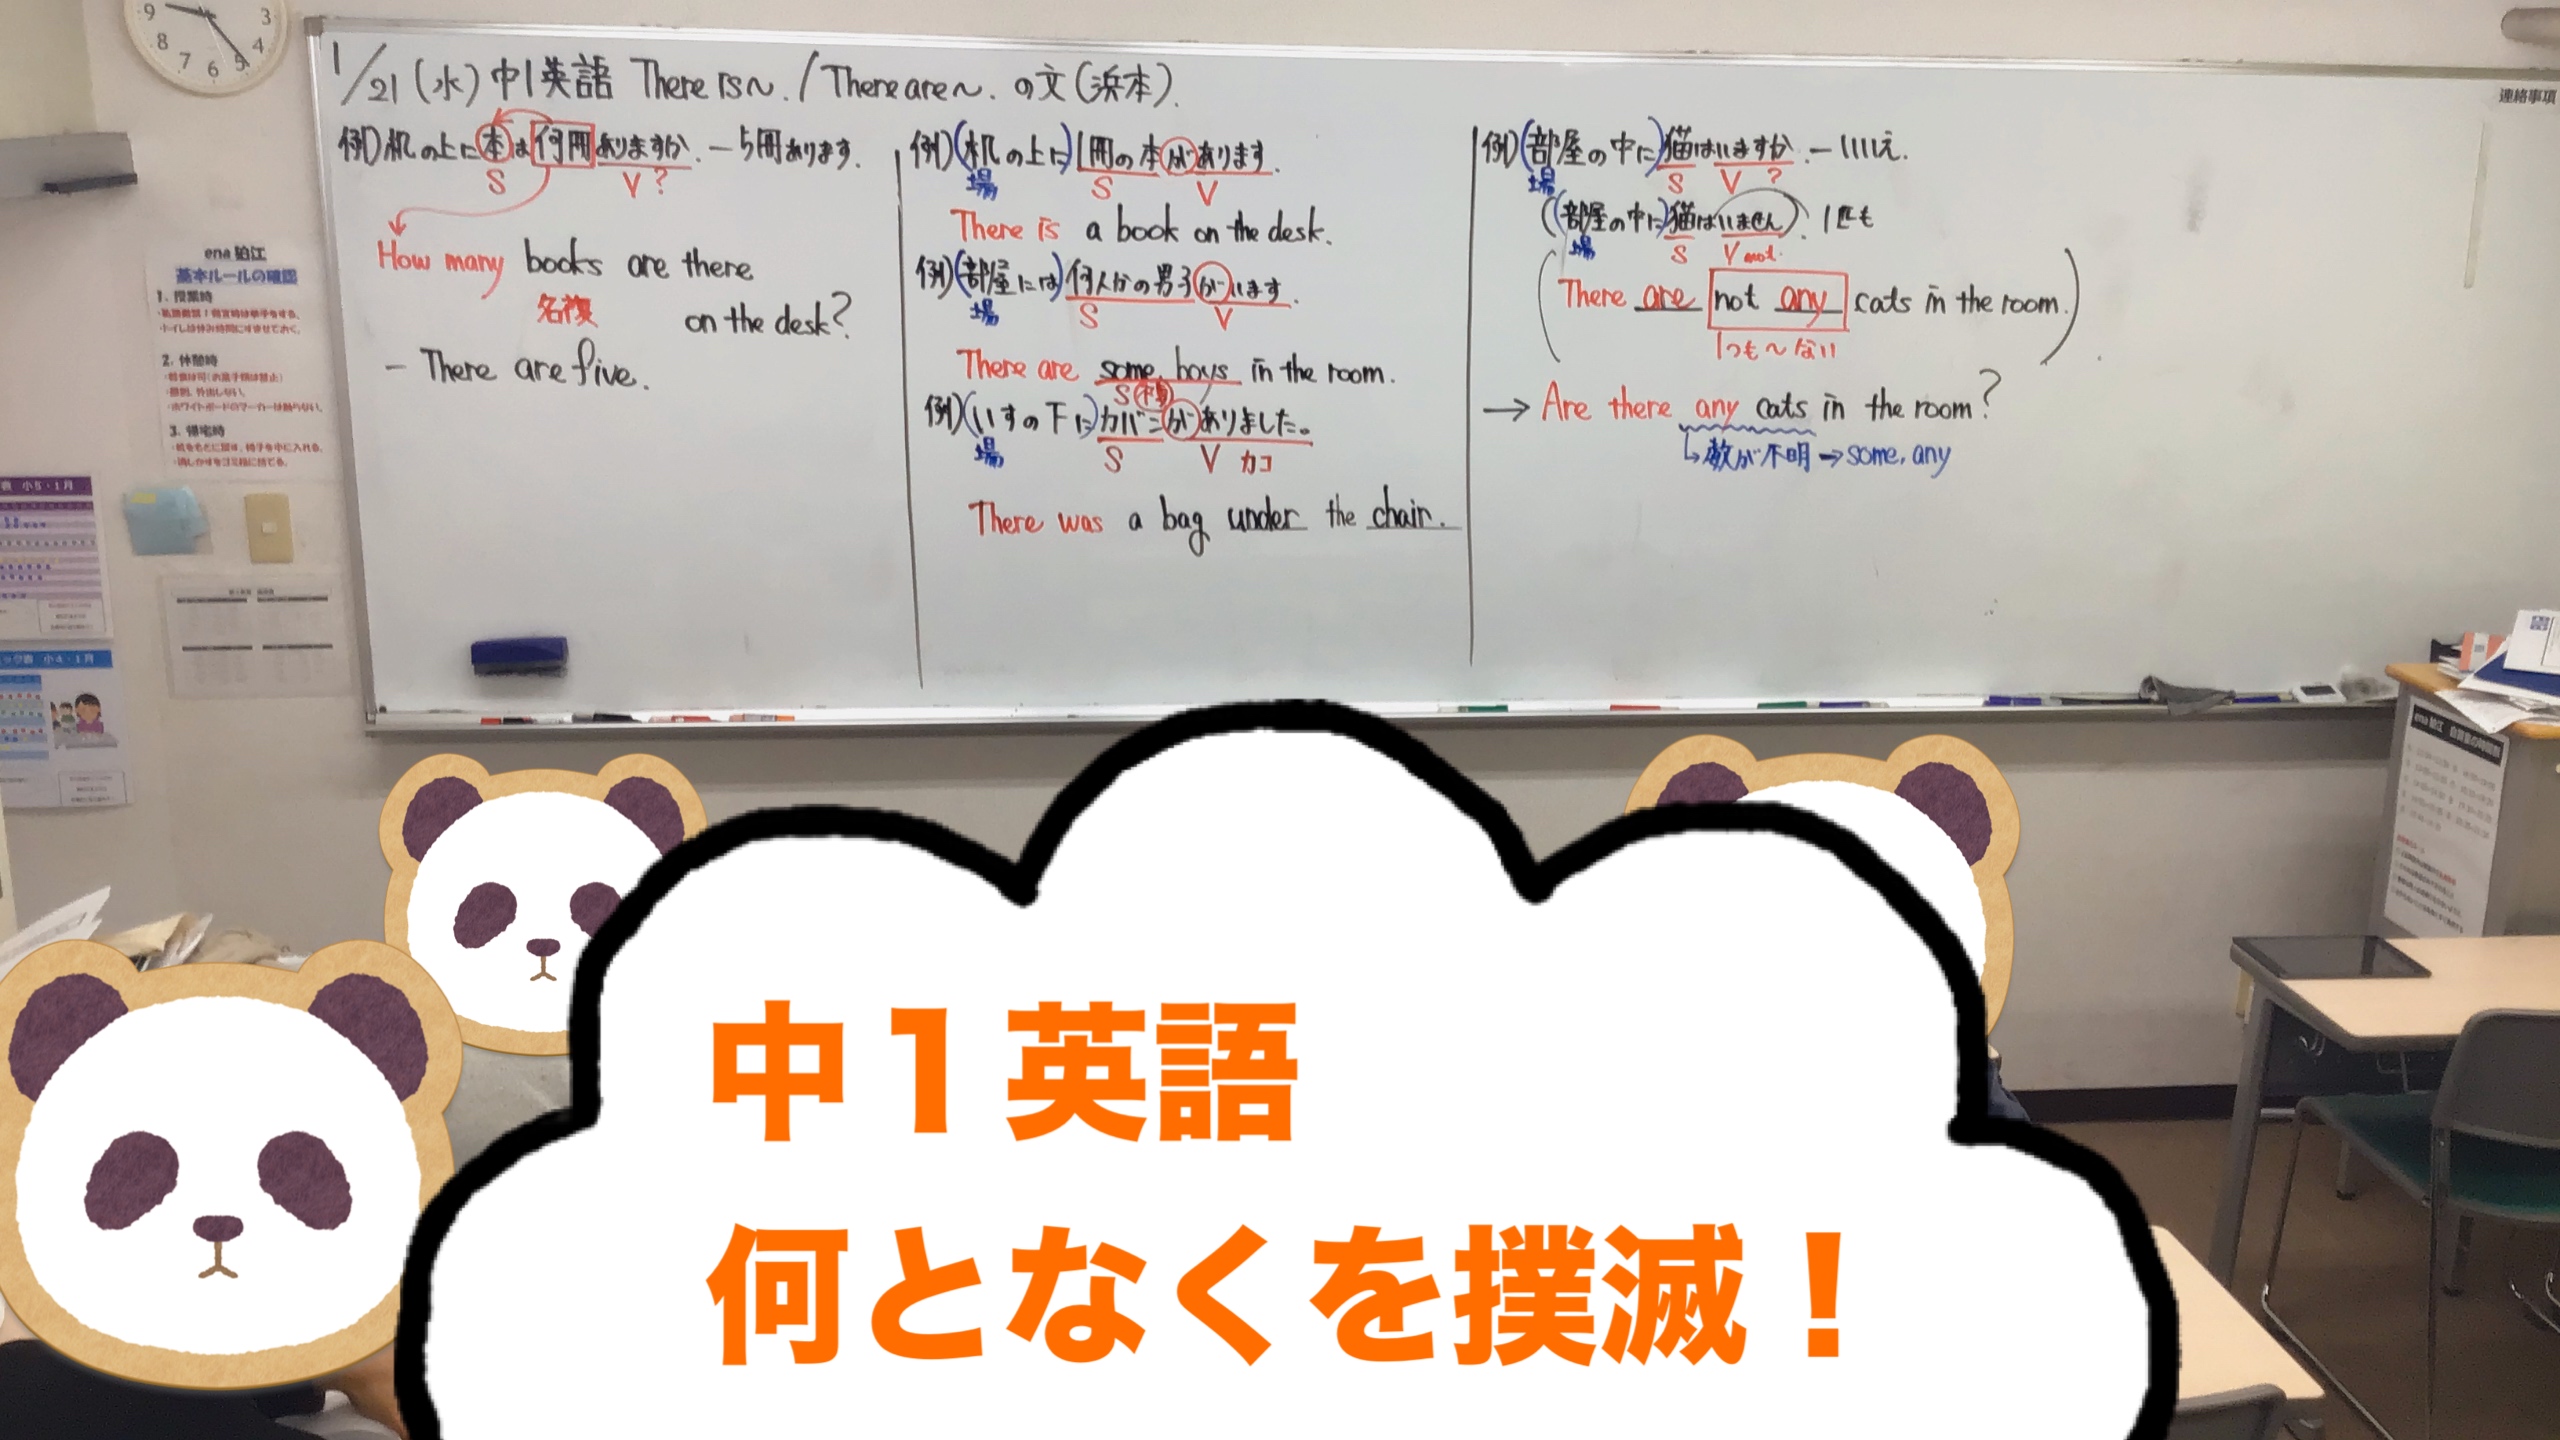 1/21(水)中1英語 There is~./There are~.の文(浜本).
例)机の上に本は何冊ありますか.―5冊あります.
S V?
How many books are there
名複 on the desk?
- There are five.
例)(机の上に)1冊の本があります.
場 S V
There is a book on the desk.
例)(部屋には)何人かの男子がいます.
場 S V
There are some boys in the room.
S(複)
例)(いすの下に)カバンがありました。
場 S V カコ
There was a bag under the chair.
例)(部屋の中に)猫はいますか.―いいえ.
場 S V ?
((部屋の中に)猫はいません). 1匹も
場 S V not.
(There are not any cats in the room.)
1つも~ない
→ Are there any cats in the room?
↳数が不明→some, any
連絡事項
9 8 7 6 5 4 3
ena 狛江
基本ルールの確認
1. 授業時
2. 休憩時
3. 帰宅時
小5・1月
小4・1月
ena 狛江
中1英語
何となくを撲滅！